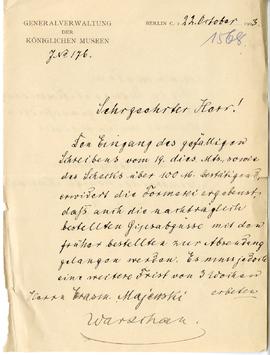 GENERALVERWALTUNG
DER
KÖNIGLICHEN MUSEEN
J.№ 176.
BERLIN C. 22. October 3
1568.
Sehrgeehrter Herr!
Den Eingang des gefälligen
Schreibens vom 19. dies. Mts. sowie
des Schecks über 100 M. bestätigend,
erwidert die Formerei ergebenst,
daß auch die nachträglich
bestellten Gipsabgüsse mit den
früher bestellten zur Absendung
gelangen werden. Es muß jedoch
eine weitere Frist von 3 Wochen
Herrn Erasm Majewski erbeten
Warschau.